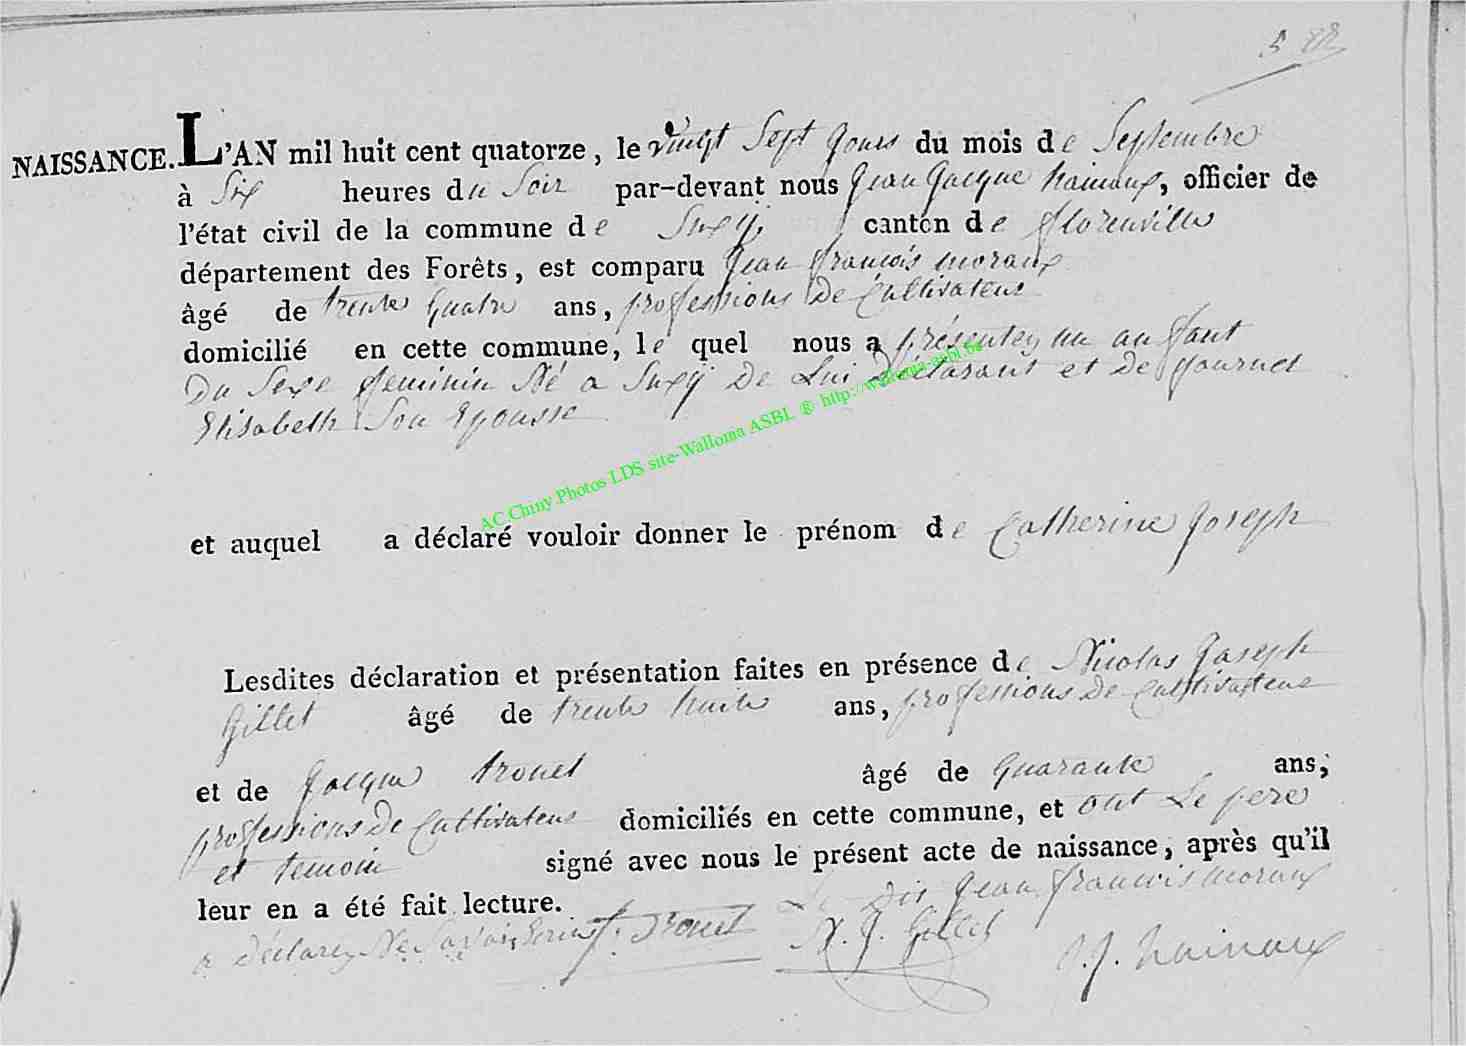 5
NAISSANCE. L'AN mil huit cent quatorze, le vingt Sept jours du mois de Septembre
à Six heures du Soir par-devant nous Jean Jacque hainaux, officier de
l'état civil de la commune de Suxÿ, canton de florenville
département des Forêts, est comparu Jean francois moraux
âgé de trente quatre ans, professions de Cultivateur
domicilié en cette commune, le quel nous a présentez un anffant
Du Sexe feminin Né a Suxÿ De Lui Déclarant et de journet
Elisabeth Son Epousse
AC Chiny Photos LDS site-Walloma ASBL ® http://walloma-asbl.be
et auquel a déclaré vouloir donner le prénom de Catherine Joseph
Lesdites déclaration et présentation faites en présence de Nicolas Joseph
Gillet âgé de trente huite ans, professions De Cultivateur
et de Jacque trouet âgé de quarante ans,
professions De Cultivateur domiciliés en cette commune, et ont Le pere
et temoin signé avec nous le présent acte de naissance, après qu'il
leur en a été fait lecture. Le Dit Jean francois moraux
a Déclarez Ne Savoir Ecrire J. trouet N. J. Gillet J. J. hainaux